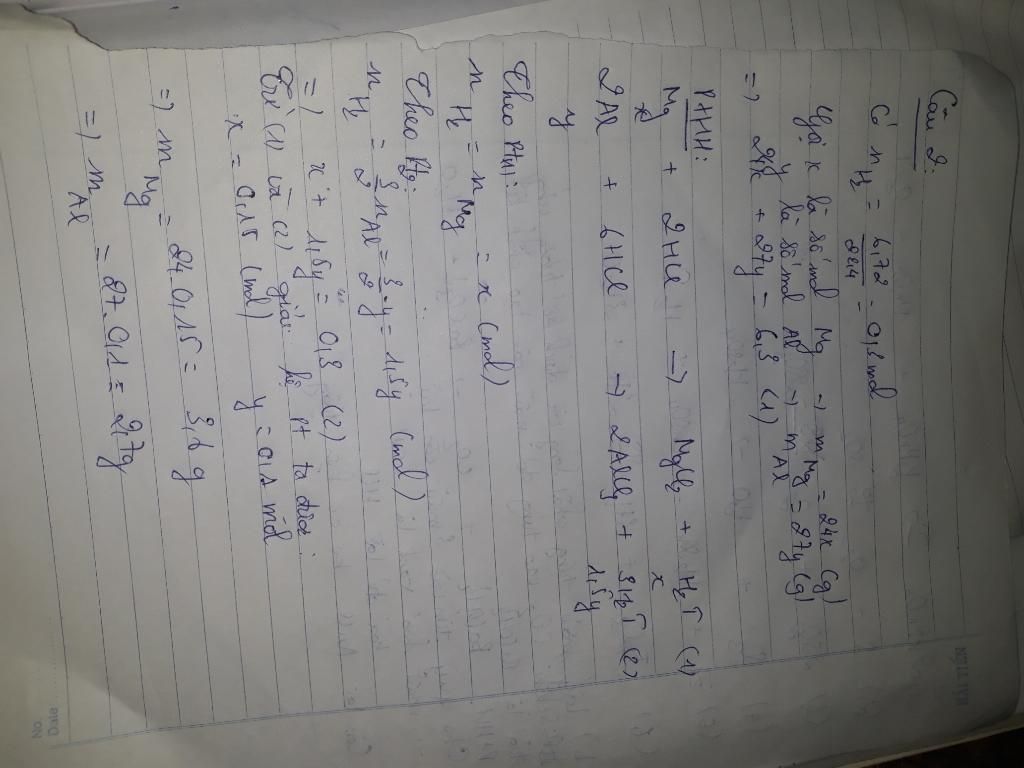 Câu 2:
Có n H₂ = 6,72 / 22,4 = 0,3 mol
Gọi x là số mol Mg → m Mg = 24x (g)
y là số mol Al → m Al = 27y (g)
=> 24x + 27y = 6,3 (1)
PHHH:
Mg + 2HCl → MgCl₂ + H₂↑ (1)
x x
2Al + 6HCl → 2AlCl₃ + 3H₂↑ (2)
y 1,5y
Theo PHH:
n H₂ = n Mg = x (mol)
Theo H₂:
n H₂ = 3/2 n Al = 3/2 . y = 1,5y (mol)
=> x + 1,5y = 0,3 (2)
Từ (1) và (2) giải hệ pt ta được:
x = 0,15 (mol) y = 0,1 mol
=> m Mg = 24. 0,15 = 3,6 g
=> m Al = 27. 0,1 = 2,7g
No.
Date
HẢI TIẾN